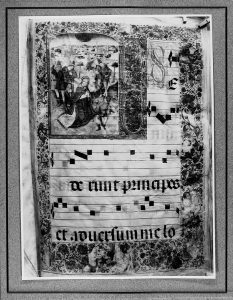 S E
de runt principes
et adversum me lo